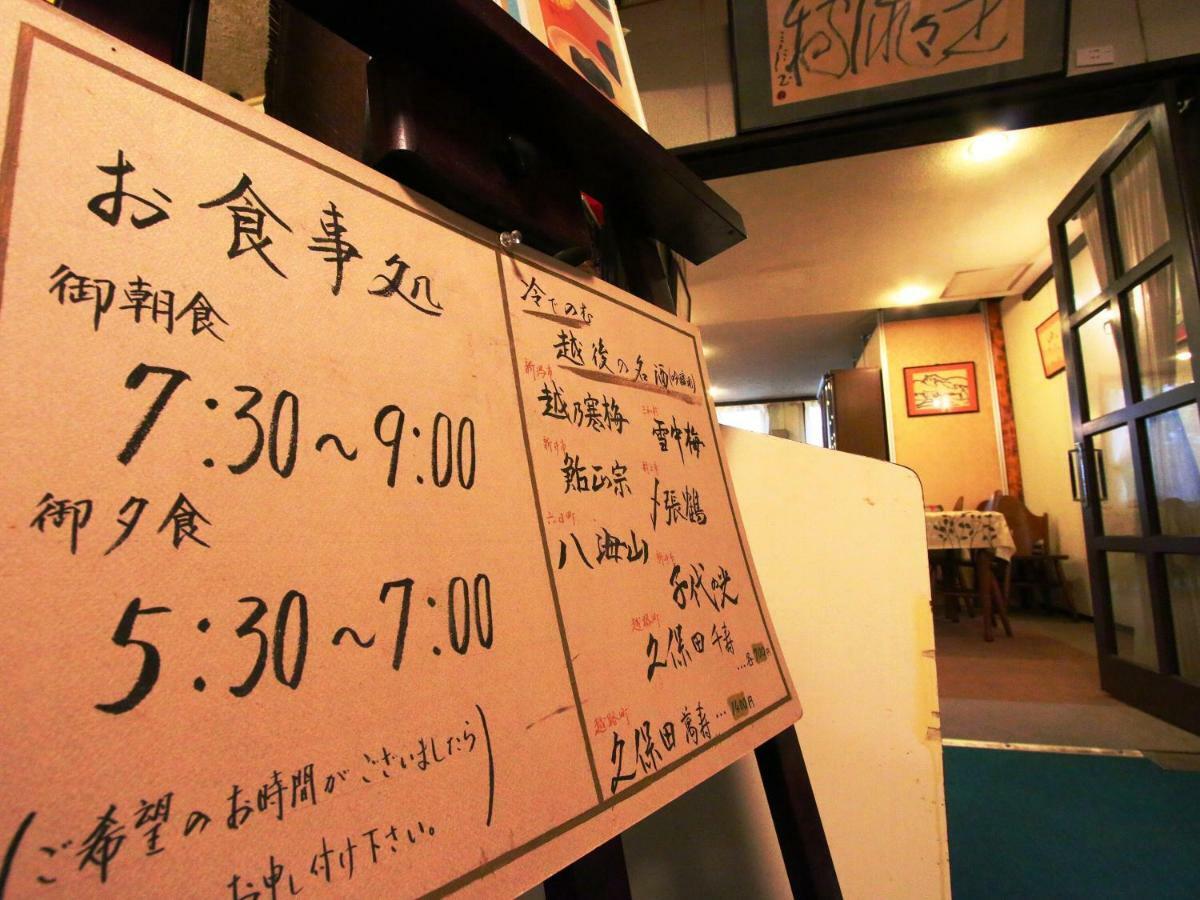 お食事処
御朝食
7:30～9:00
御夕食
5:30～7:00
(ご希望のお時間がございましたら
お申し付け下さい。)
冷でのむ
越後の名酒(吟醸酒)
新潟市
越乃寒梅
雪中梅
新井市
鮎正宗
〆張鶴
六日町
八海山
千代の光
越路町
久保田 千寿
…各700円
越路町
久保田 萬寿…1400円